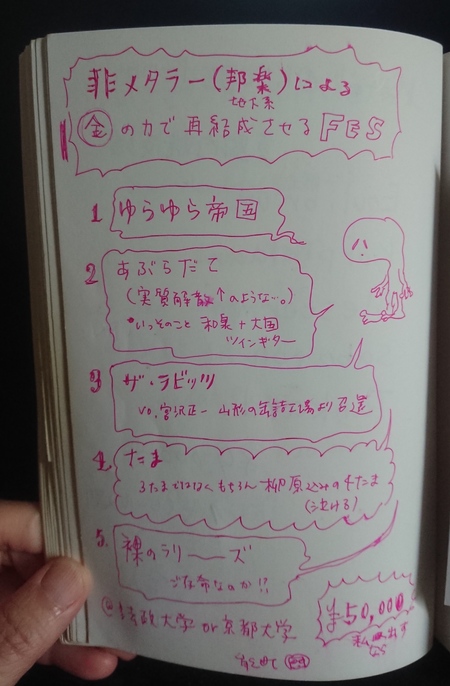 非メタラー(邦楽)による
地下系
㊎の力で再結成させるFES
1 ゆらゆら帝国
2 あぶらだこ
(実質解散↑のような…。)
*いっそのこと 和泉+大国
ツインギター
3 ザ・ラビッツ
vo.宮沢正一 山形の缶詰工場より召還
4. たま
3たまではなくもちろん柳原込みの4たま
(泣ける)
5. 裸のラリーズ
ご存命なのか!?
@法政大学or京都大学
¥50,000
私は出す